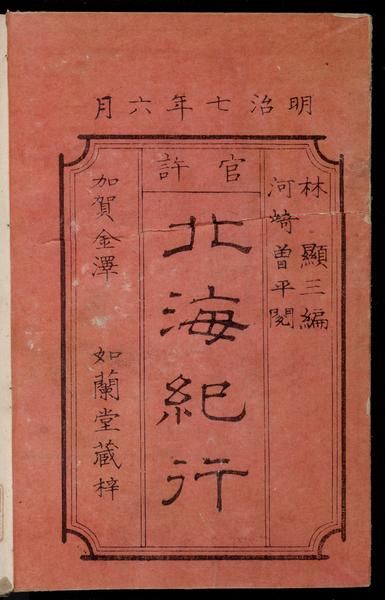 明治七年六月
林顯三編
河﨑曽平閲
官許
北海紀行
加賀金澤 如蘭堂蔵梓